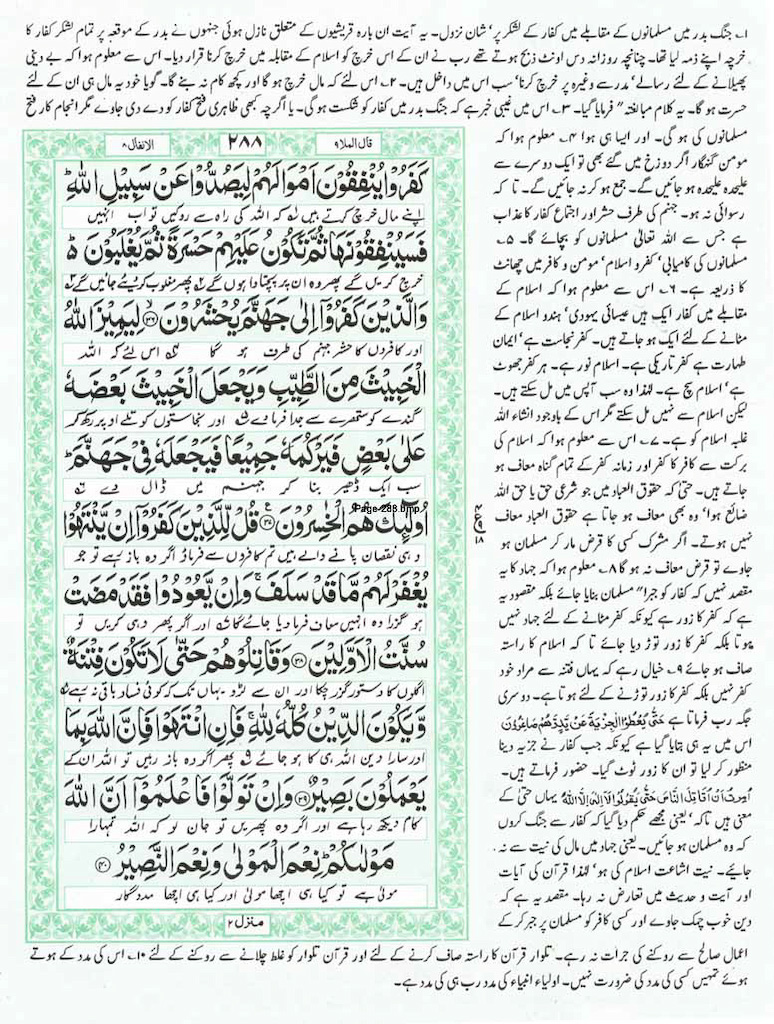 ۱۔ جنگ بدر میں مسلمانوں کے مقابلے میں کفار کے لشکر پر' شان نزول۔ یہ آیت ان بارہ قریشیوں کے متعلق نازل ہوئی جنہوں نے بدر کے موقعہ پر تمام لشکر کفار کا
خرچہ اپنے ذمہ لیا تھا۔ چنانچہ روزانہ دس اونٹ ذبح ہوتے تھے رب نے ان کے اس خرچ کو اسلام کے مقابلہ میں خرچ کرنا قرار دیا۔ اس سے معلوم ہوا کہ بے دینی
پھیلانے کے لئے رسالے' مدرسے وغیرہ پر خرچ کرنا' سب اس میں داخل ہیں۔ ۲۔ اس لئے کہ مال خرچ ہو گا اور کچھ کام نہ بنے گا۔ گویا خود یہ مال ہی ان کے لئے
حسرت ہو گا۔ یہ کلام مبالغتہ" فرمایا گیا۔ ۳۔ اس میں غیبی خبر ہے کہ جنگ بدر میں کفار کو شکست ہوگی۔ یا اگرچہ کبھی ظاہری فتح کفار کو دے دی جاوے مگر انجام کار فتح
مسلمانوں کی ہو گی۔ اور ایسا ہی ہوا ۴۔ معلوم ہوا کہ
مومن گنہگار اگر دوزخ میں گئے بھی تو ایک دوسرے سے
علیحدہ علیحدہ ہو جائیں گے۔ جمع ہو کر نہ جائیں گے۔ تا کہ
رسوائی نہ ہو۔ جہنم کی طرف حشر اور اجتماع کفار کا عذاب
ہے جس سے اللہ تعالیٰ مسلمانوں کو بچائے گا۔ ۵۔
مسلمانوں کی کامیابی' کفر و اسلام' مومن و کافر میں چھانٹ
کا ذریعہ ہے۔ ۶۔ اس سے معلوم ہوا کہ اسلام کے
مقابلے میں کفار ایک ہیں عیسائی یہودی' ہندو اسلام کے
مٹانے کے لئے ایک ہو جاتے ہیں۔ کفر نجاست ہے' ایمان
طہارت ہے کفر تاریکی ہے۔ اسلام نور ہے۔ ہر کفر جھوٹ
ہے' اسلام سچ ہے۔ لہٰذا وہ سب آپس میں مل سکتے ہیں۔
لیکن اسلام سے نہیں مل سکتے مگر اس کے باوجود انشاء اللہ
غلبہ اسلام کو ہے۔ ۷۔ اس سے معلوم ہوا کہ اسلام کی
برکت سے کافر کا کفر اور زمانہ کفر کے تمام گناہ معاف ہو
جاتے ہیں۔ حتیٰ کہ حقوق العباد میں جو شرعی حق یا حق اللہ
ضائع ہوا' وہ بھی معاف ہو جاتا ہے حقوق العباد معاف
نہیں ہوتے۔ اگر مشرک کسی کا قرض مار کر مسلمان ہو
جاوے تو قرض معاف نہ ہو گا ۸۔ معلوم ہوا کہ جہاد کا یہ
مقصد نہیں کہ کفار کو جبرا" مسلمان بنایا جائے بلکہ مقصود یہ
ہے کہ کفر کا زور ہے کیونکہ کفر مٹانے کے لئے جہاد نہیں
ہوتا بلکہ کفر کا زور توڑ دیا جائے تا کہ اسلام کا راستہ
صاف ہو جائے ۹۔ خیال رہے کہ یہاں فتنہ سے مراد خود
کفر نہیں بلکہ کفر کا زور توڑنے کے لئے ہوتا ہے۔ دوسری
جگہ رب فرماتا ہے حَتّٰی یُعْطُوا الْجِزْیَۃَ عَنْ یَّدٍ وَّھُمْ صَاغِرُوْنَ
اس میں یہ ہی بتایا گیا ہے کیونکہ جب کفار نے جزیہ دینا
منظور کر لیا تو ان کا زور ٹوٹ گیا۔ حضور فرماتے ہیں۔
اُمِرْتُ اَنْ اُقَاتِلَ النَّاسَ حَتّٰی یَقُوْلُوْا لَا اِلٰہَ اِلَّا اللّٰہُ یہاں حتیٰ کے
معنی ہیں تاکہ' یعنی مجھے حکم دیا گیا کہ کفار سے جنگ کروں
کہ وہ مسلمان ہو جائیں۔ یعنی جہاد میں مال کی نیت سے نہ
جائے۔ نیت اشاعت اسلام کی ہو' لہٰذا قرآن کی آیات
اور آیت و حدیث میں تعارض نہ رہا۔ مقصد یہ ہے کہ
دین خوب چمک جاوے اور کسی کافر کو مسلمان پر جبر کرکے
قال الملا ۹ ۲۸۸ الانفال ۸
كَفَرُوْا يُنْفِقُوْنَ اَمْوَالَهُمْ لِيَصُدُّوْا عَنْ سَبِيْلِ اللّٰهِ ؕ
اپنے مال خرچ کرتے ہیں کہ اللہ کی راہ سے روکیں تو اب انہیں
فَسَيُنْفِقُوْنَهَا ثُمَّ تَكُوْنُ عَلَيْهِمْ حَسْرَةً ثُمَّ يُغْلَبُوْنَ ؕ۬
خرچ کریں گے پھر وہ ان پر پچھتاوا ہوں گے پھر مغلوب کر دیئے جائیں گے
وَالَّذِيْنَ كَفَرُوْۤا اِلٰى جَهَنَّمَ يُحْشَرُوْنَ ﴿۳۶﴾ لِيَمِيْزَ اللّٰهُ
اور کافروں کا حشر جہنم کی طرف ہو گا اس لئے کہ اللہ
الْخَبِيْثَ مِنَ الطَّيِّبِ وَيَجْعَلَ الْخَبِيْثَ بَعْضَهٗ
گندے کو ستھرے سے جدا فرما دے اور نجاستوں کو تلے اوپر رکھ کر
عَلٰى بَعْضٍ فَيَرْكُمَهٗ جَمِيْعًا فَيَجْعَلَهٗ فِيْ جَهَنَّمَ ؕ
سب ایک ڈھیر بنا کر جہنم میں ڈال دے
اُولٰٓئِكَ هُمُ الْخٰسِرُوْنَ ﴿۳۷﴾ قُلْ لِّلَّذِيْنَ كَفَرُوْۤا اِنْ يَّنْتَهُوْا
Page-288.bmp
وہی نقصان پانے والے ہیں تم کافروں سے فرماؤ اگر وہ باز رہے تو جو
يُغْفَرْ لَهُمْ مَّا قَدْ سَلَفَ ۚ وَاِنْ يَّعُوْدُوْا فَقَدْ مَضَتْ
ہو گزرا وہ انہیں معاف فرما دیا جائے گا اور اگر پھر وہی کریں تو
سُنَّتُ الْاَوَّلِيْنَ ﴿۳۸﴾ وَقَاتِلُوْهُمْ حَتّٰى لَا تَكُوْنَ فِتْنَةٌ
اگلوں کا دستور گزر چکا اور ان سے لڑو یہاں تک کہ کوئی فساد باقی نہ رہے
وَّيَكُوْنَ الدِّيْنُ كُلُّهٗ لِلّٰهِ ۚ فَاِنِ انْتَهَوْا فَاِنَّ اللّٰهَ بِمَا
اور سارا دین اللہ ہی کا ہو جائے پھر اگر وہ باز رہیں تو اللہ ان کے
يَعْمَلُوْنَ بَصِيْرٌ ﴿۳۹﴾ وَاِنْ تَوَلَّوْا فَاعْلَمُوْۤا اَنَّ اللّٰهَ
کام دیکھ رہا ہے اور اگر وہ پھریں تو جان لو کہ اللہ تمہارا
مَوْلٰىكُمْ ؕ نِعْمَ الْمَوْلٰى وَنِعْمَ النَّصِيْرُ ﴿۴۰﴾
مولیٰ ہے تو کیا ہی اچھا مولیٰ اور کیا ہی اچھا مددگار
منزل ۲
اعمال صالح سے روکنے کی جرات نہ رہے۔ تلوار قرآن کا راستہ صاف کرنے کے لئے اور قرآن تلوار کو غلط چلانے سے روکنے کے لئے ۱۰۔ اس کی مدد کے ہوتے
ہوئے تمہیں کسی کی مدد کی ضرورت نہیں۔ اولیاء انبیاء کی مدد رب ہی کی مدد ہے۔